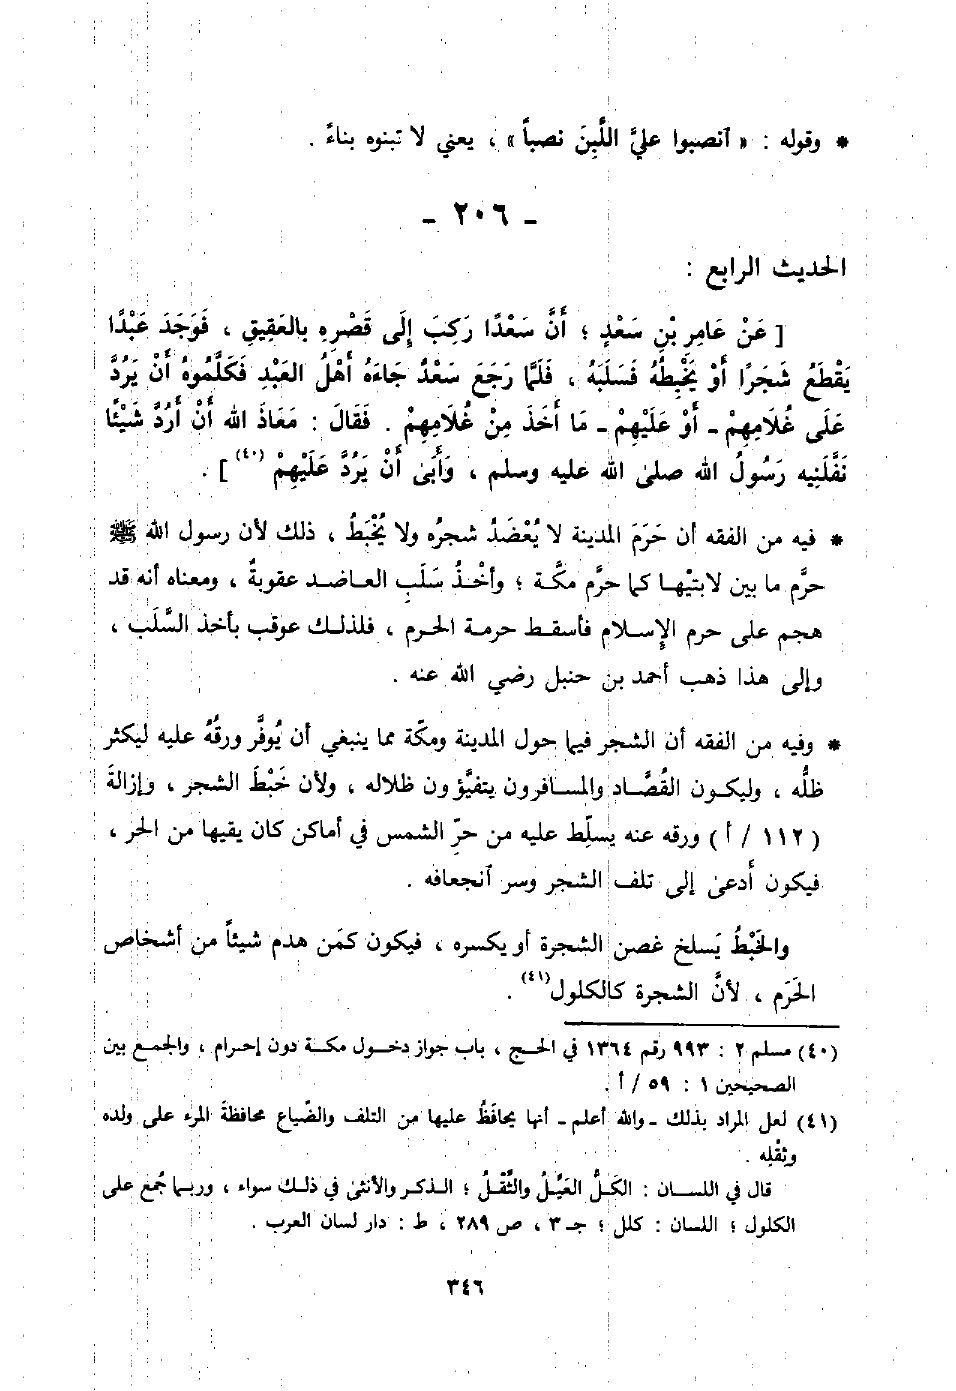 * وقوله : « آنصبوا عليَّ اللَّبِنَ نصباً » ، يعني لا تبنوه بناءً .
- ٢٠٦ -
الحديث الرابع :
[ عَنْ عَامِرِ بْنِ سَعْدٍ ؛ أَنَّ سَعْدًا رَكِبَ إِلَى قَصْرِهِ بِالعَقِيقِ ، فَوَجَدَ عَبْدًا
يَقْطَعُ شَجَرًا أَوْ يَخْبِطُهُ فَسَلَبَهُ ، فَلَمَّا رَجَعَ سَعْدٌ جَاءَهُ أَهْلُ العَبْدِ فَكَلَّمُوهُ أَنْ يَرُدَّ
عَلَى غُلَامِهِمْ - أَوْ عَلَيْهِمْ - مَا أَخَذَ مِنْ غُلَامِهِمْ . فَقَالَ : مَعَاذَ الله أَنْ أَرُدَّ شَيْئًا
نَفَّلَنِيه رَسُولُ الله صلى الله عليه وسلم ، وَأَبَىٰ أَنْ يَرُدَّ عَلَيْهِمْ (٤٠) ] .
* فيه من الفقه أن حَرَمَ المدينة لا يُعْضَدُ شجرُه ولا يُخْبَطُ ، ذلك لأن رسول الله ﷺ
حرَّم ما بين لابتيْها كما حرَّم مكَّة ؛ وأخْذُ سَلَبِ العاضد عقوبةٌ ، ومعناه أنه قد
هجم على حرم الإسلام فأسقط حرمة الحرم ، فلذلك عوقب بأخذ السَّلَب ،
وإلى هذا ذهب أحمد بن حنبل رضي الله عنه .
* وفيه من الفقه أن الشجر فيما حول المدينة ومكّة مما ينبغي أن يُوفَّر ورقُهُ عليه ليكثر
ظلُّه ، وليكون القُصَّاد والمسافرون يتفيَّؤون ظلاله ، ولأن خَبْطَ الشجر ، وإزالةَ
( ١١٢ / أ ) ورقه عنه يسلِّط عليه من حرِّ الشمس في أماكن كان يقيها من الحر ،
فيكون أَدعىٰ إلى تلف الشجر وسر آنجعافه .
والخَبْطُ يَسلخ غصن الشجرة أو يكسره ، فيكون كمَن هدم شيئاً من أشخاص
الحَرَم ، لأنَّ الشجرة كالكلول(٤١) .
(٤٠) مسلم ٢ : ٩٩٣ رقم ١٣٦٤ في الحج ، باب جواز دخول مكة دون إحرام ، والجمع بين
الصحيحين ١ : ٥٩ / أ .
(٤١) لعل المراد بذلك - والله أعلم - أنها يحافَظُ عليها من التلف والضّياع محافظةَ المرء على ولده
وثِقْلِه .
قال في اللسان : الكَلُّ العَيِّلُ والثِّقْلُ ؛ الذكر والأنثى في ذلك سواء ، وربما جُمع على
الكلول ؛ اللسان : كلل ؛ جـ ٣ ، ص ٢٨٩ ، ط : دار لسان العرب .
٣٤٦